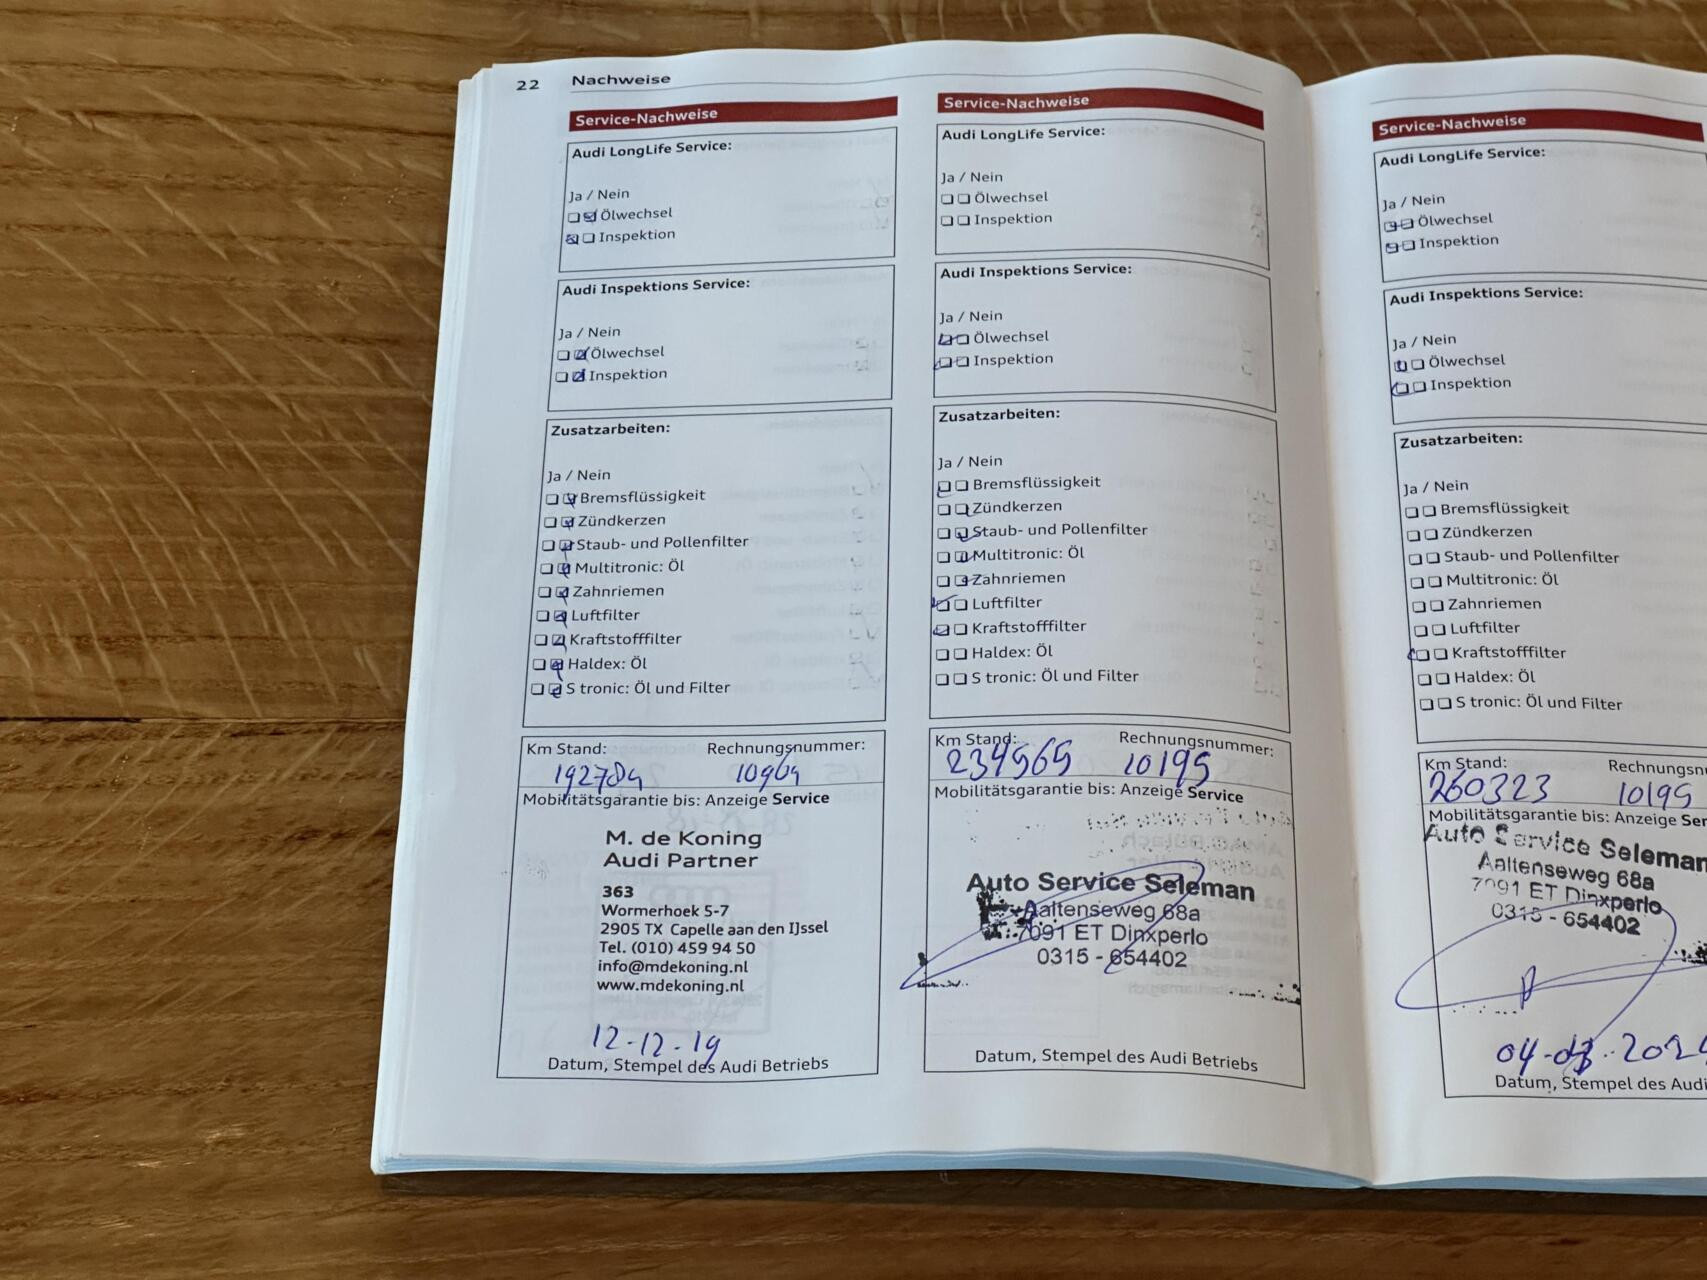 22 Nachweise
Service-Nachweise
Audi LongLife Service:
Ja / Nein
Ölwechsel
Inspektion
Audi Inspektions Service:
Ja / Nein
Ölwechsel
Inspektion
Zusatzarbeiten:
Ja / Nein
Bremsflüssigkeit
Zündkerzen
Staub- und Pollenfilter
Multitronic: Öl
Zahnriemen
Luftfilter
Kraftstofffilter
Haldex: Öl
S tronic: Öl und Filter
Km Stand: Rechnungsnummer:
192784 10964
Mobilitätsgarantie bis: Anzeige Service
M. de Koning
Audi Partner
363
Wormerhoek 5-7
2905 TX Capelle aan den IJssel
Tel. (010) 459 94 50
info@mdekoning.nl
www.mdekoning.nl
12-12-19
Datum, Stempel des Audi Betriebs
Service-Nachweise
Audi LongLife Service:
Ja / Nein
Ölwechsel
Inspektion
Audi Inspektions Service:
Ja / Nein
Ölwechsel
Inspektion
Zusatzarbeiten:
Ja / Nein
Bremsflüssigkeit
Zündkerzen
Staub- und Pollenfilter
Multitronic: Öl
Zahnriemen
Luftfilter
Kraftstofffilter
Haldex: Öl
S tronic: Öl und Filter
Km Stand: Rechnungsnummer:
234565 10195
Mobilitätsgarantie bis: Anzeige Service
Auto Service Seleman
Aaltenseweg 68a
7091 ET Dinxperlo
0315 - 654402
Datum, Stempel des Audi Betriebs
Service-Nachweise
Audi LongLife Service:
Ja / Nein
Ölwechsel
Inspektion
Audi Inspektions Service:
Ja / Nein
Ölwechsel
Inspektion
Zusatzarbeiten:
Ja / Nein
Bremsflüssigkeit
Zündkerzen
Staub- und Pollenfilter
Multitronic: Öl
Zahnriemen
Luftfilter
Kraftstofffilter
Haldex: Öl
S tronic: Öl und Filter
Km Stand: Rechnungsn
260323 10195
Mobilitätsgarantie bis: Anzeige Ser
Auto Service Seleman
Aaltenseweg 68a
7091 ET Dinxperlo
0315 - 654402
Datum, Stempel des Audi